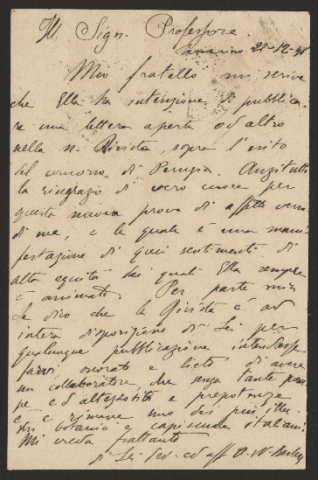 Ill. Sign. Professore.
Camerino 28-12-95
Mio fratello mi scrive
che Ella ha intenzione di pubblica-
re una lettera aperta od altro
nella n. Rivista, sopra l'esito
del concorso di Perugia. Anzitutto
la ringrazio di vero cuore per
questa nuova prova di affetto verso
di me, e la quale è una mani-
festazione di quei sentimenti di
alta equità dai quali Ella sempre
è animato. Per parte mia
Le dico che la Rivista è ad
intera disposizione di Lei per
qualunque pubblicazione intendesse
farvi onorato e lieto di avere
un collaboratore, che senza tante pom-
pe ed alterigia e prepotenze
è e rimane uno dei più illu-
stri botanici e capiscuola italiani.
Mi creda frattanto
di Lei dev. ed aff.